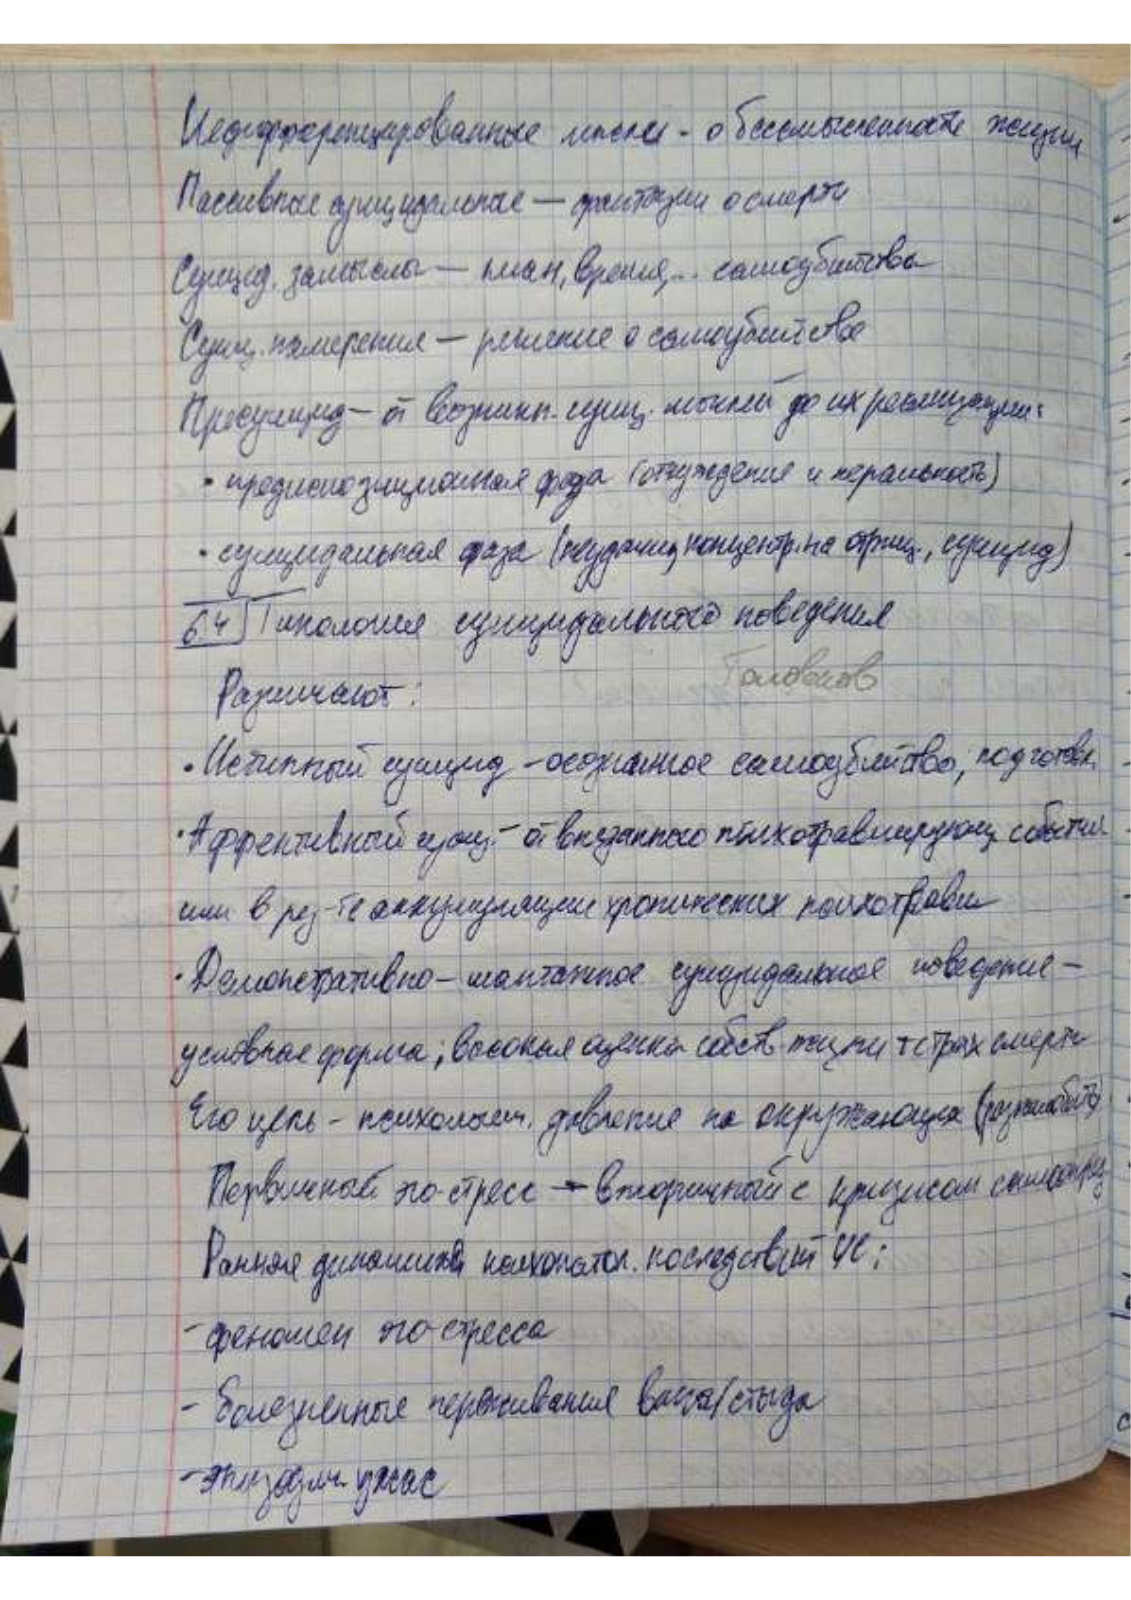 Недифференцированные мысли - о бессмысленности жизни
Пассивные суицидальные — фантазии о смерти
Суицид. замыслы — план, время,... самоубийства
Суиц. намерения — решение о самоубийстве
Пресуицид - от возникн. суиц. мыслей до их реализации:
• предиспозиционная фаза (отчуждение и неральность)
• суицидальная фаза (неудачи, концентр. на отриц., суицид)
6.4 Типология суицидального поведения
Голованов
Различают:
• Истинный суицид - осознанное самоубийство, подготовк
• Аффективный суиц. - от внезапного психотравмирующ события
или в рез-те аккумуляции хронических психотравм
• Демонстративно - шантажное суицидальное поведение -
условная форма; высокая оценка собств жизни + страх смерти
Его цель - психологич. давление на окружающих (разжалобить)
Первичный эго-стресс → вторичный с кризисом
Ранняя динамика психопатол. последствий ЧС:
- феномен эго-стресса
- болезненные переживания вины/стыда
- эпизодич. ужас